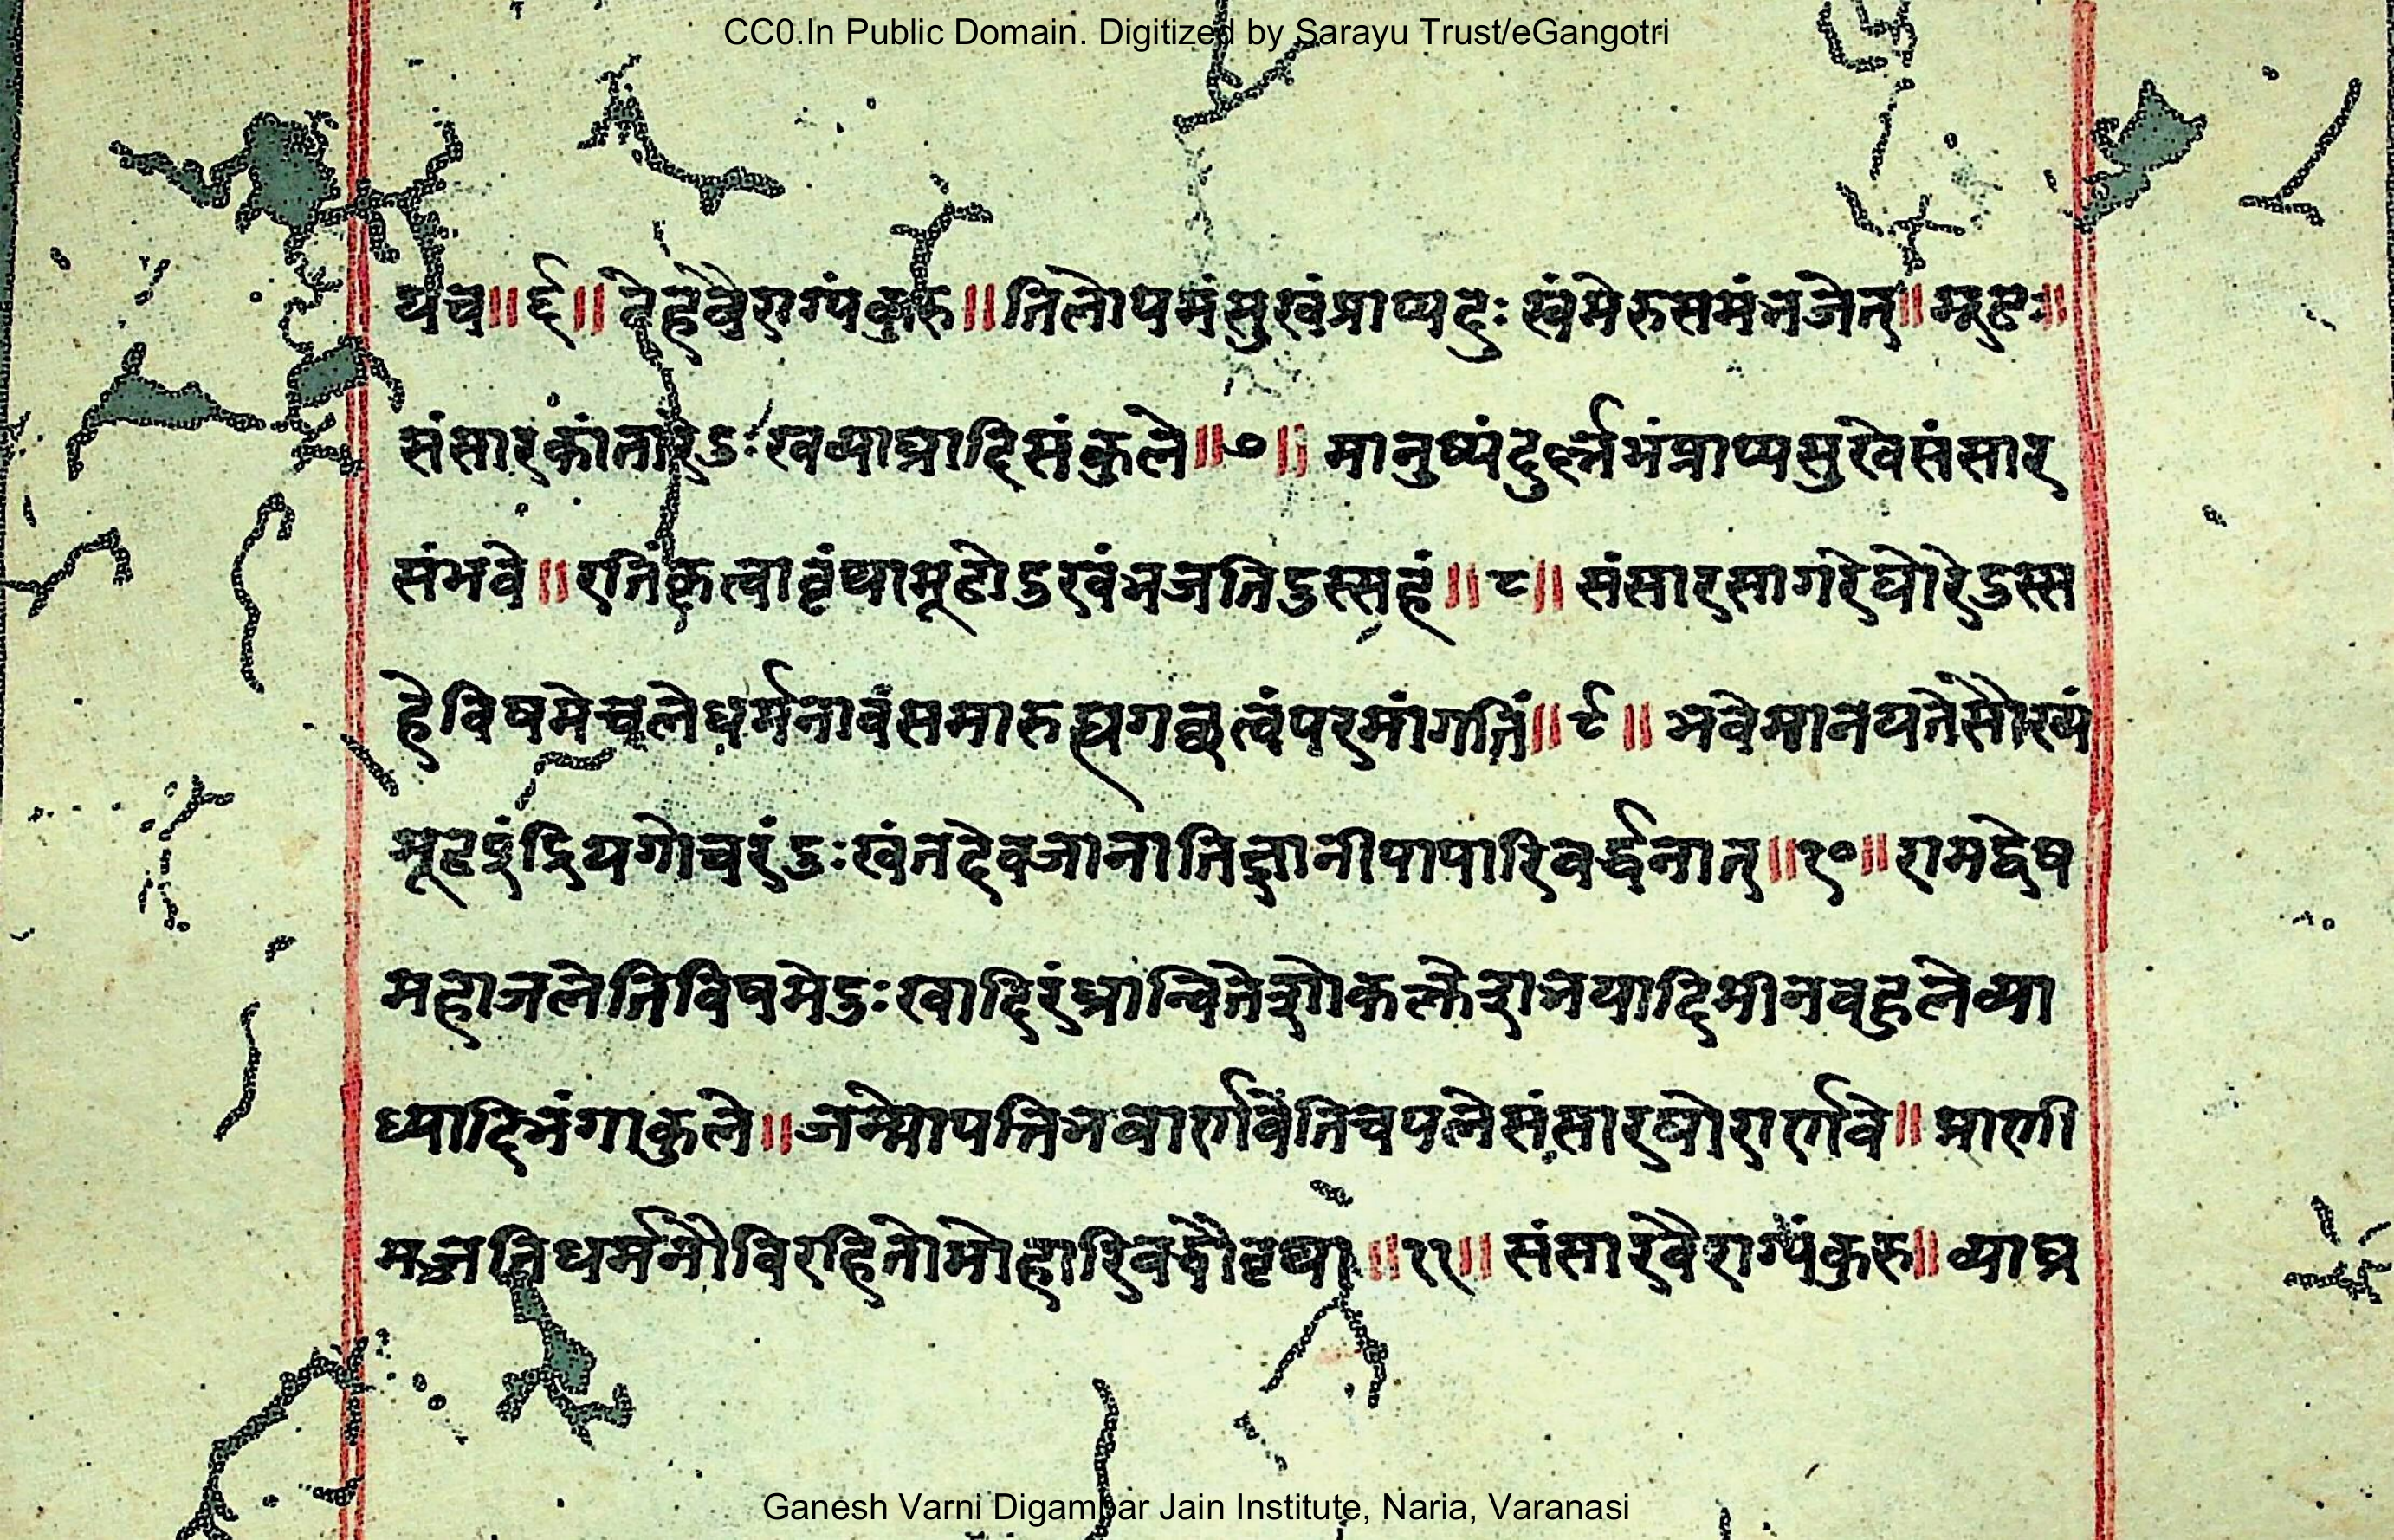 CC0.In Public Domain. Digitized by Sarayu Trust/eGangotri
यच॥६॥ देहवैराग्यंकुरु॥तिलोपमंसुखंप्राप्यदुः खंमेरुसमंभजेत्॥मूढः॥
संसारकांतारेदुःखव्याघ्रादिसंकुले॥७॥ मानुष्यंदुर्ल्लभंप्राप्यसुखेसंसार
संभवे॥रतिंकृत्वावृथामूढोदुखंभजतिदुस्सहं॥८॥ संसारसागरेघोरेदुस्स
हेविषमेचलेधर्मनावंसमारुह्यगच्छत्वंपरमांगतिं॥९॥ भवेमानयतेसौख्यं
मूढइंद्रियगोचरंदुःखंतदेवजानातिज्ञानीपापारिवर्द्धनात्॥१०॥रागद्वेष
महाजलेतिविषमेदुःखादिरंध्रान्वितेशोकक्लेशभयादिमीनबहुलेव्या
ध्यादिभंगाकुले॥जन्मोपत्तिभवार्णवेतिचपलेसंसारघोरार्णवे॥प्राणी
मज्जतिधर्मनौविरहितोमोहारिबद्धोवृथा॥११॥ संसारवैराग्यंकुरु॥व्याघ्र
Ganesh Varni Digambar Jain Institute, Naria, Varanasi